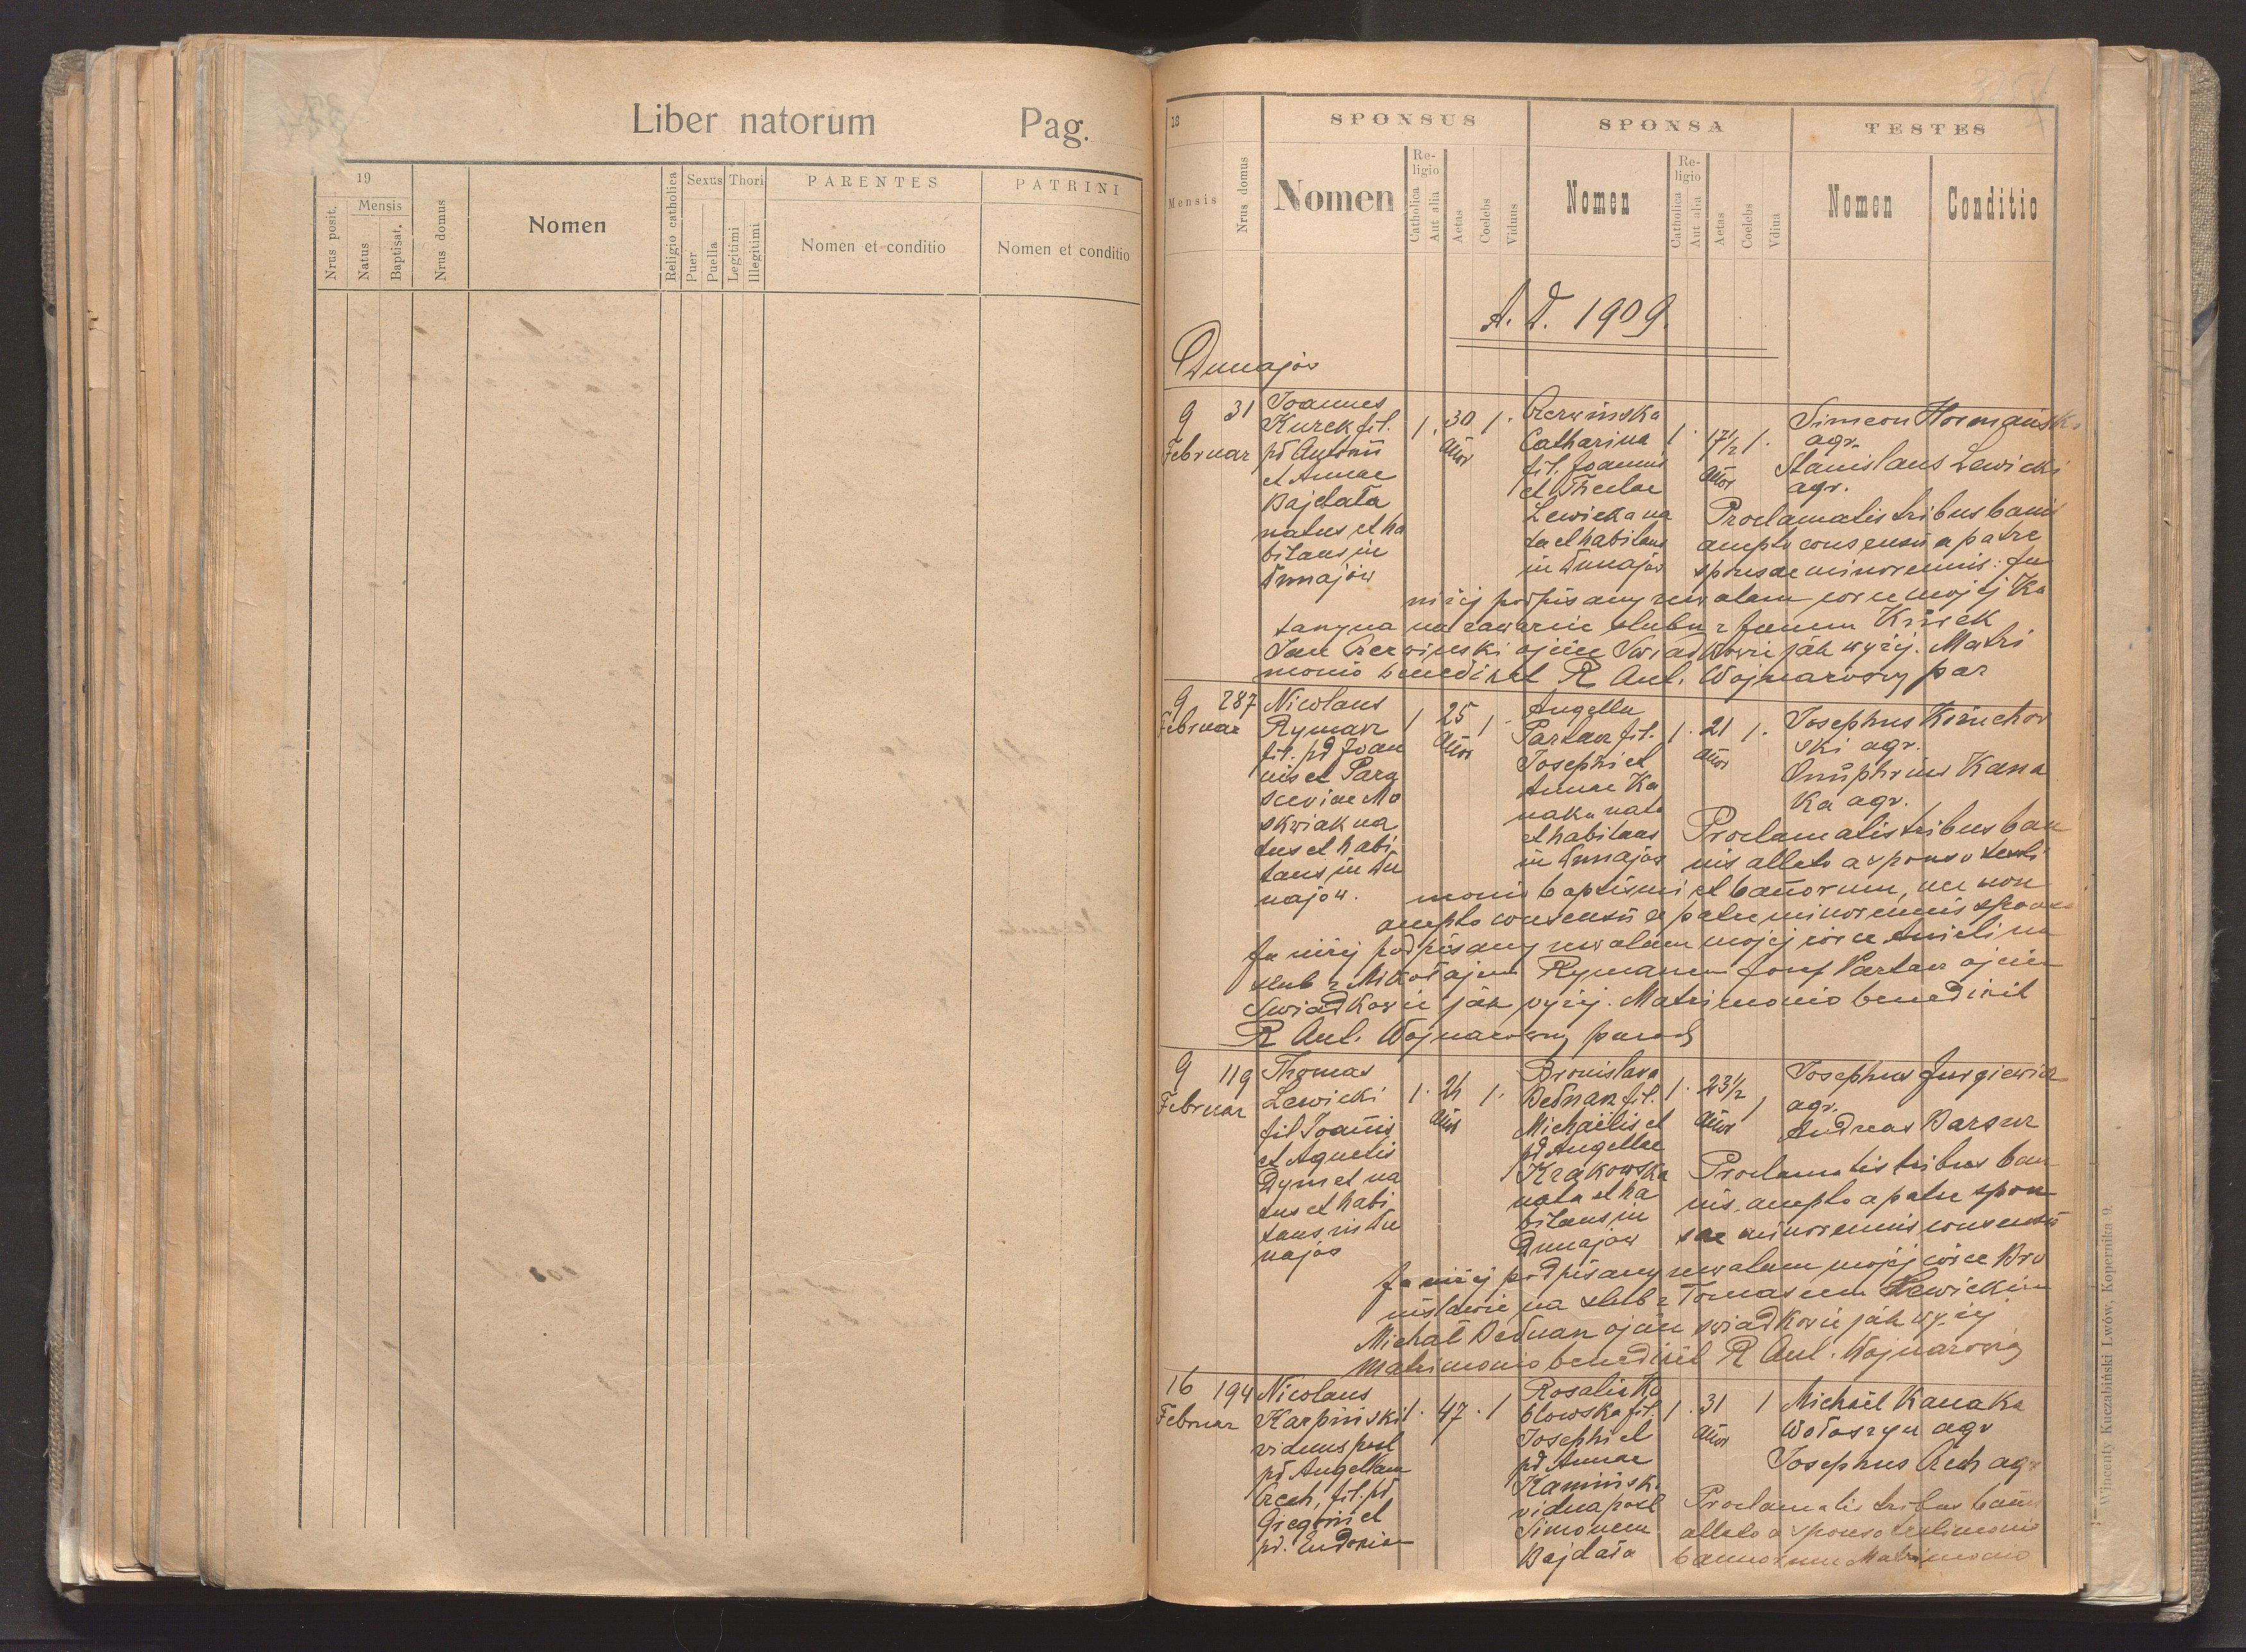 Liber natorum Pag.
19
Mensis
Nrus posit.
Natus
Baptisat.
Nrus domus
Nomen
Religio catholica
Sexus
Puer
Puella
Thori
Legitimi
Illegitimi
PARENTES
Nomen et conditio
PATRINI
Nomen et conditio
18
SPONSUS
SPONSA
TESTES
Mensis
Nrus domus
Nomen
Religio
Catholica
Aut alia
Aetas
Coelebs
Viduus
Nomen
Religio
Catholica
Aut alia
Aetas
Coelebs
Vdiua
Nomen
Conditio
A. D. 1909.
Dunajów
9 31
Februar
Joannes
Kurek fil.
pd Antonii
et Annae
Bajdała
natus et ha
bitans in
Dunajów
1. 30 1.
annor
Czerwinska
Catharina
fil. Joannis
et Theclae
Lewicka na
ta et habitans
in Dunajów
1. 17½ 1.
annor
Simeon
agr.
Stanislaus Lewicki
agr.
Proclamatis tribus bannis
accepto consensu a patre
sponsae minorennis: Ja
niżej podpisany zezwalam corce mojej Ka
tarzyna na zawarcie slubu z Janem Kurek
Jan Czerwinski ojciec Swiadkowie jak wyżej. Matri
monio benedixit R Ant. Wojnarowsky par
9 287
Februar
Nicolaus
Rymarz
fil. pd Joan
nis et Para
sceviae Mo
skwiak na
tus et habi
tans in Du
najów.
1 25 1.
annor
Angella
Partacz fil.
Josephi et
Annae Ka
naka nata
et habitans
in Dunajów
1. 21 1.
annor
Josephus
ski agr.
Onuphrius Kana
ka agr.
Proclamatis tribus ban
nis allato a sponso testi
monio baptismi et bannorum, nec non
accepto consensu a patre minorennis sponsae
Ja niżej podpisany zezwalam mojej corce Anieli na
slub z Mikołajem Rymarzem Jozef Partacz ojciec
Swiadkowie jak wyżej. Matrimonio benedixit
R Ant. Wojnarowsky paroch
9 119
Februar
Thomas
Lewicki
fil Joannis
et Agnetis
Dymet na
tus et habi
tans in Du
najów
1. 24 1.
annor
Bronislava
Bednarz fil.
Michaëlis et
pd Angellae
Krakowska
nata et ha
bitans in
Dunajów
1. 23½ 1
annor
Josephus Jurgiewicz
agr.
Andreas
Proclamatis tribus ban
nis, accepto a patre spon
sae minorennis consensu
Ja niżej podpisany zezwalam mojej corce Bro
nisławie na slub z Tomaszem Lewickim
Michał Bednarz ojciec swiadkowie jak wyżej
Matrimonio benedixit R Ant. Wojnarowsky
16 194
Februar
Nicolaus
Karpiński
viduus post
pd Angellam
Czech, fil. pd
Gregorii et
pd. Eudoxiae
1. 47. 1
Rosalia Ko
błowska fil.
Josephi et
pd Annae
Kamińska
vidua post
Simonem
Bajdała
1. 31 1
annor
Michaël Kanaka
Wołoszyn agr
Josephus Czech agr
Proclamatis tribus bannis
allato a sponso testimonio
bannorum Matrimonio
Wincenty Kuczabiński Lwów, Kopernika 9.